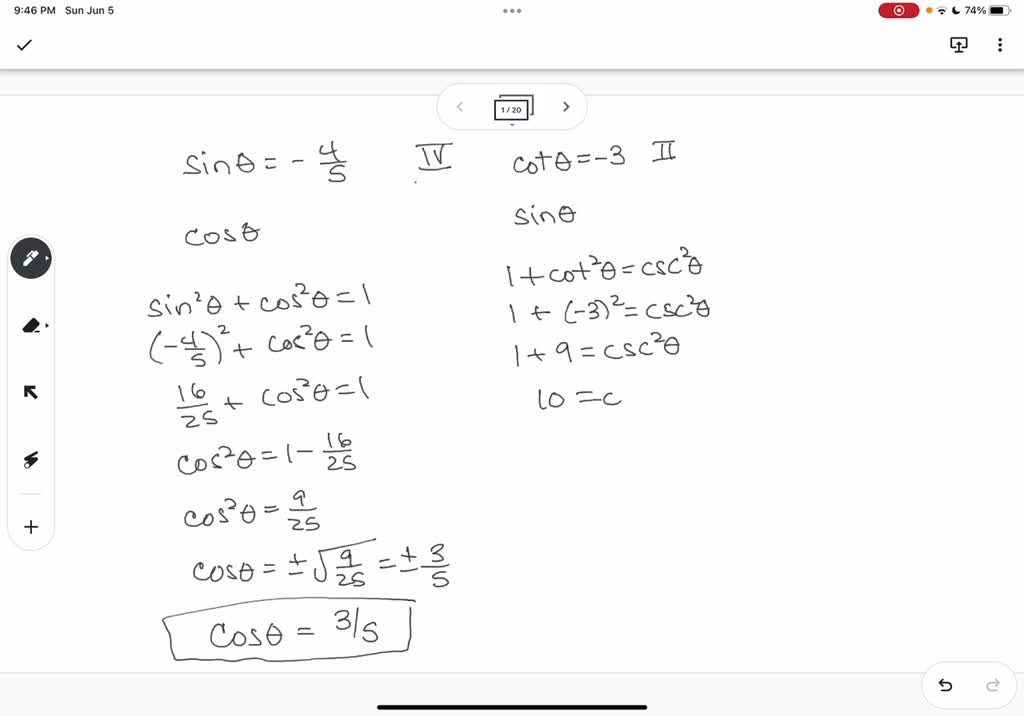 9:46 PM Sun Jun 5
74%
1 / 20
sinθ = - 4/5 IV
cosθ
sin²θ + cos²θ = 1
(-4/5)² + cos²θ = 1
16/25 + cos²θ = 1
cos²θ = 1 - 16/25
cos²θ = 9/25
cosθ = ±√9/25 = ± 3/5
cosθ = 3/5
cotθ = -3 II
sinθ
1 + cot²θ = csc²θ
1 + (-3)² = csc²θ
1 + 9 = csc²θ
10 = c